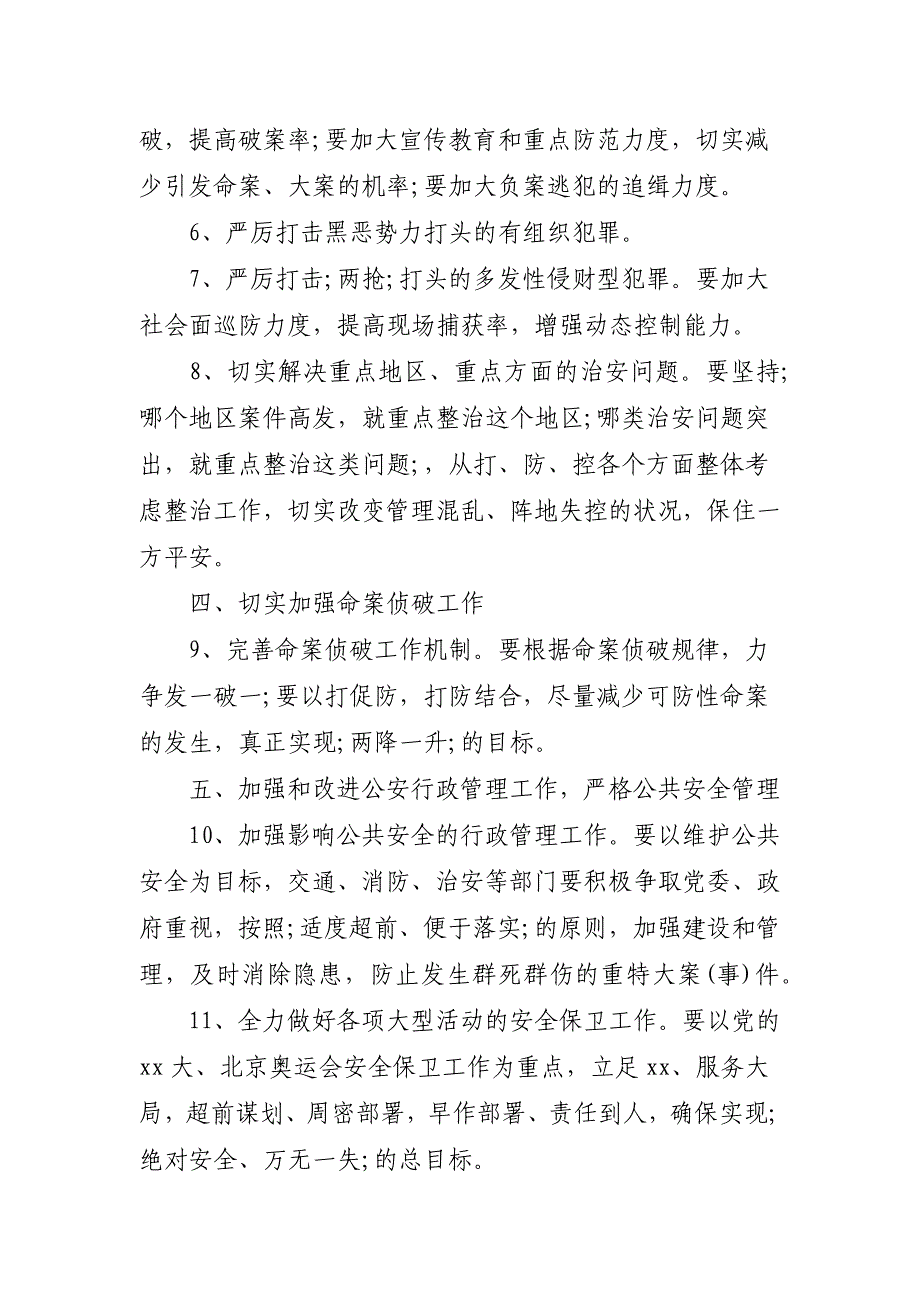 破，提高破案率;要加大宣传教育和重点防范力度，切实减
少引发命案、大案的机率;要加大负案逃犯的追缉力度。
6、严厉打击黑恶势力打头的有组织犯罪。
7、严厉打击;两抢;打头的多发性侵财型犯罪。要加大
社会面巡防力度，提高现场捕获率，增强动态控制能力。
8、切实解决重点地区、重点方面的治安问题。要坚持;
哪个地区案件高发，就重点整治这个地区;哪类治安问题突
出，就重点整治这类问题;，从打、防、控各个方面整体考
虑整治工作，切实改变管理混乱、阵地失控的状况，保住一
方平安。
四、切实加强命案侦破工作
9、完善命案侦破工作机制。要根据命案侦破规律，力
争发一破一;要以打促防，打防结合，尽量减少可防性命案
的发生，真正实现;两降一升;的目标。
五、加强和改进公安行政管理工作，严格公共安全管理
10、加强影响公共安全的行政管理工作。要以维护公共
安全为目标，交通、消防、治安等部门要积极争取党委、政
府重视，按照;适度超前、便于落实;的原则，加强建设和管
理，及时消除隐患，防止发生群死群伤的重特大案(事)件。
11、全力做好各项大型活动的安全保卫工作。要以党的
xx大、北京奥运会安全保卫工作为重点，立足xx、服务大
局，超前谋划、周密部署，早作部署、责任到人，确保实现;
绝对安全、万无一失;的总目标。